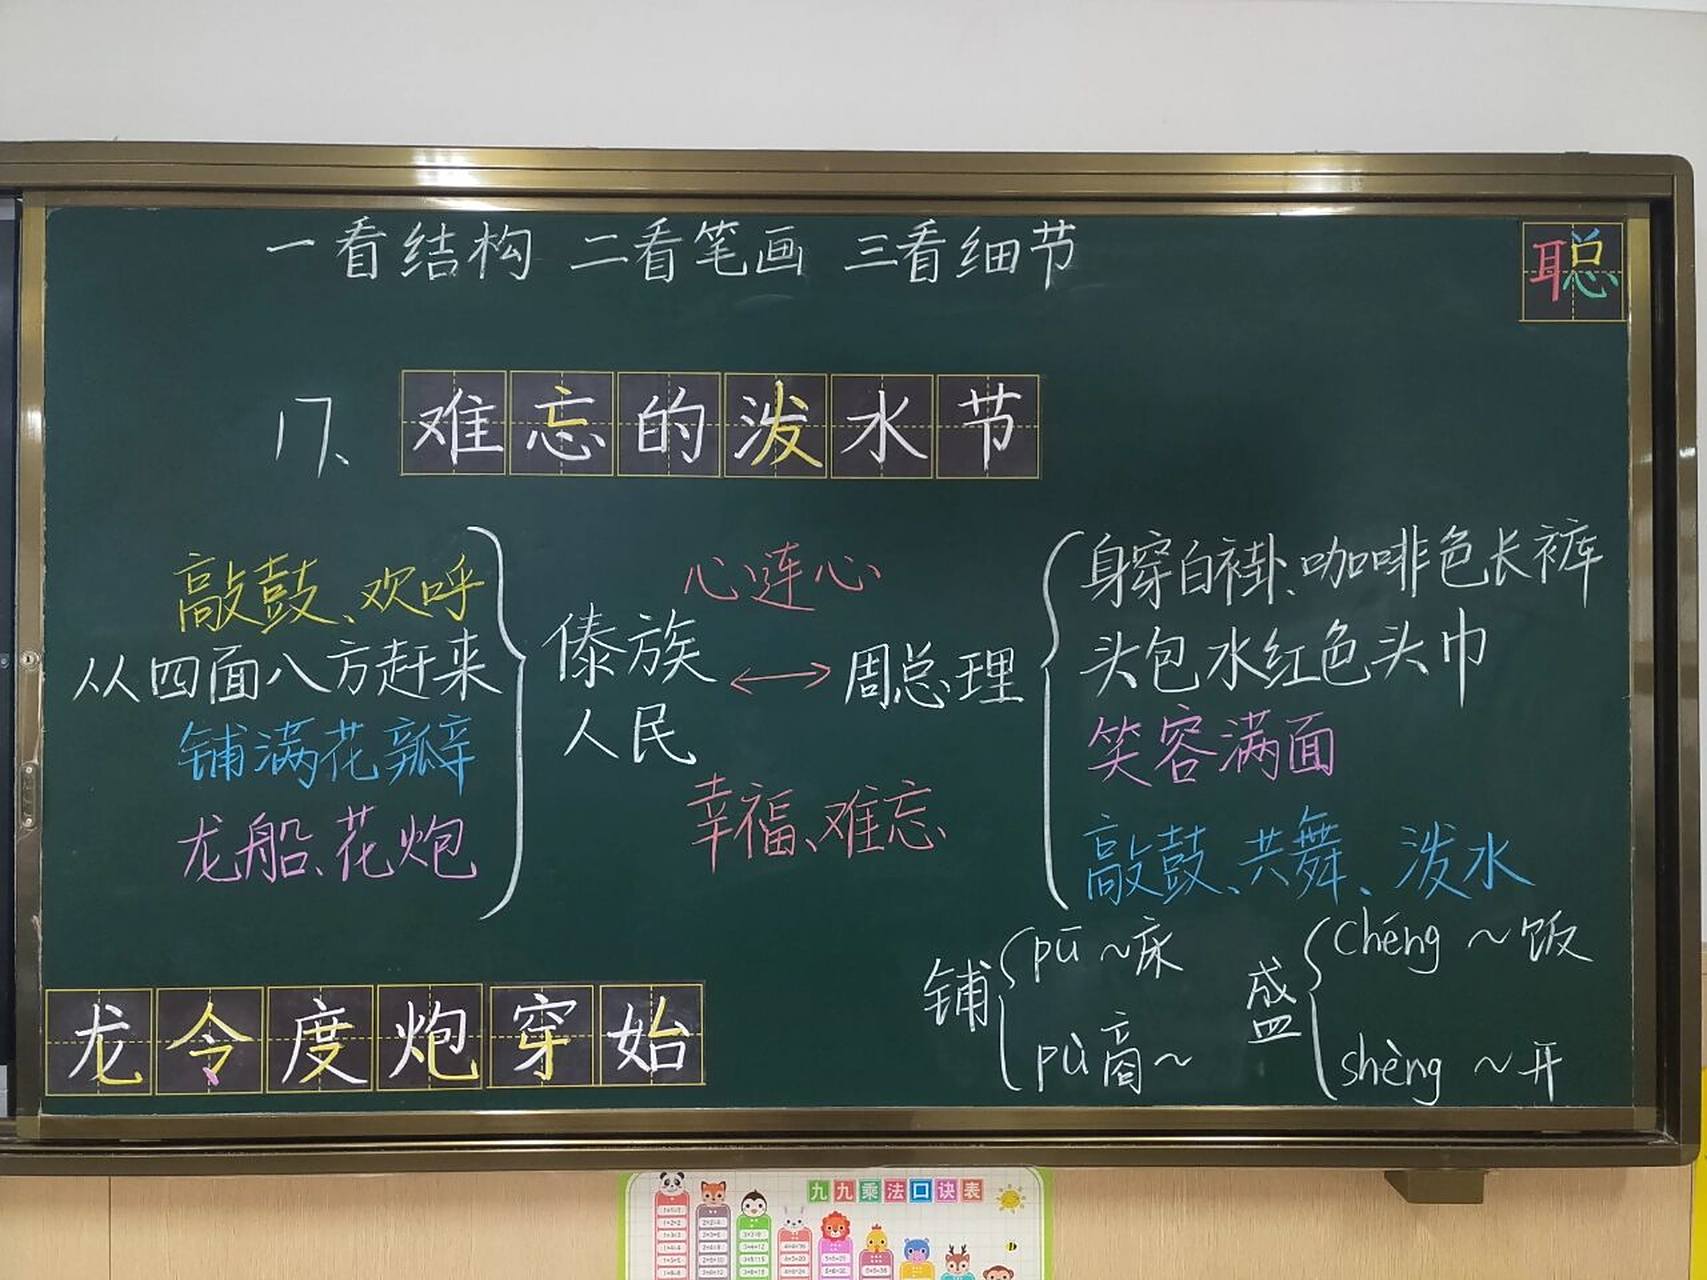 一看结构 二看笔画 三看细节
聪
17、难忘的泼水节
敲鼓、欢呼
从四面八方赶来
铺满花瓣
龙船、花炮
傣族
人民
心连心
周总理
幸福、难忘
身穿白褂、咖啡色长裤
头包水红色头巾
笑容满面
敲鼓、共舞、泼水
龙令度炮穿始
铺
pū ~床
pù 商~
盛
chéng ~饭
shèng ~开
九九乘法口诀表